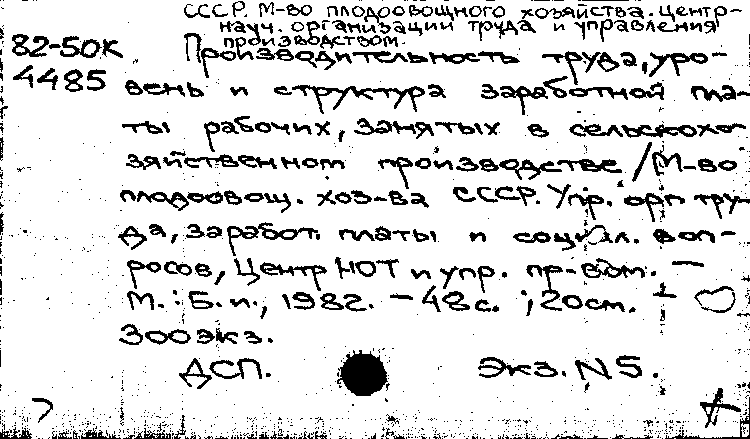 СССР. М-во плодоовощного хозяйства. Центр-
науч. организации труда и управления
производством.
82-50К Производительность труда, уро-
4485 вень и структура заработной пла-
ты рабочих, занятых в сельскохо-
зяйственном производстве / М-во
плодоовощ. хоз-ва СССР. Упр. орг. тру-
да, заработ. платы и социал. воп-
росов, Центр НОТ и упр. пр-вом. —
М.: Б. и., 1982. — 48 с.; 20 см. —
300 экз.
ДСП. Экз. N 5.